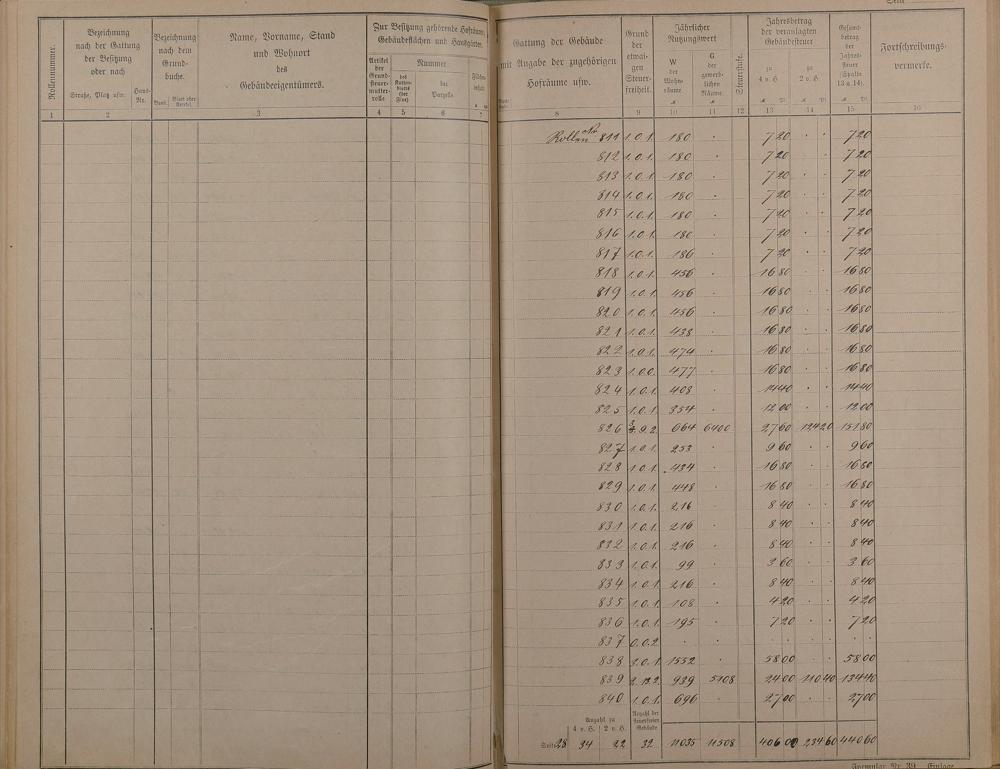 Seite
Rollennummer.
Bezeichnung
nach der Gattung
der Besitzung
oder nach
Straße, Platz usw.
Haus-
Nr.
Bezeichnung
nach dem
Grund-
buche.
Band.
Blatt oder
Artikel.
Name, Vorname, Stand
und Wohnort
des
Gebäudeeigentümers.
Zur Besitzung gehörende Hofräume,
Gebäudeflächen und Hausgärten.
Artikel
der
Grund-
steuer-
mutter-
rolle
Nummer
des
Karten-
blatts
(der
Flur)
der
Parzelle.
Flächen-
inhalt
1 2 3 4 5 6 7
Gattung der Gebäude
mit Angabe der zugehörigen
Hofräume usw.
Grund
der
etwai-
gen
Steuer-
freiheit.
Jährlicher
Nutzungswert
W
der
Wohn-
räume.
G
der
gewerb-
lichen
Räume.
Steuerstufe.
Jahresbetrag
der veranlagten
Gebäudesteuer
zu
4 v. H.
zu
2 v. H.
Gesamt-
betrag
der
Jahres-
steuer
(Spalte
13 u. 14).
Fortschreibungs-
vermerke.
8 9 10 11 12 13 14 15 16
Rollen No 811 1.0.1. 180 . 7 20 . . 7 20
812 1.0.1. 180 . 7 20 . . 7 20
813 1.0.1. 180 . 7 20 . . 7 20
814 1.0.1. 180 . 7 20 . . 7 20
815 1.0.1. 180 . 7 20 . . 7 20
816 1.0.1. 180 . 7 20 . . 7 20
817 1.0.1. 186 . 7 20 . . 7 20
818 1.0.1. 456 . 16 80 . . 16 80
819 1.0.1. 456 . 16 80 . . 16 80
820 1.0.1. 456 . 16 80 . . 16 80
821 1.0.1. 438 . 16 80 . . 16 80
822 1.0.1. 474 . 16 80 . . 16 80
823 1.0.0. 477 . 16 80 . . 16 80
824 1.0.1. 408 . 14 40 . . 14 40
825 1.0.1. 354 . 12 00 . . 12 00
826 9.2 664 6400 27 60 124 20 151 80
827 1.0.1. 253 . 9 60 . . 9 60
828 1.0.1. 434 . 16 80 . . 16 80
829 1.0.1. 448 . 16 80 . . 16 80
830 1.0.1. 216 . 8 40 . . 8 40
831 1.0.1. 216 . 8 40 . . 8 40
832 1.0.1. 216 . 8 40 . . 8 40
833 1.0.1. 99 . 3 60 . . 3 60
834 1.0.1. 216 . 8 40 . . 8 40
835 1.0.1. 108 . 4 20 . . 4 20
836 1.0.1. 195 . 7 20 . . 7 20
837 0.0.2. . . . . . . . .
838 3.0.1. 1552 . 58 00 . . 58 00
839 2.13.2. 939 5108 24 00 110 40 134 40
840 1.0.1. 696 . 27 00 . . 27 00
Anzahl zu
4 v. H. 2 v. H.
Anzahl der
steuerfreien
Gebäude
Seite 28 34 22 32 11035 11508 406 00 234 60 440 60
Formular Nr. 39. Einlage